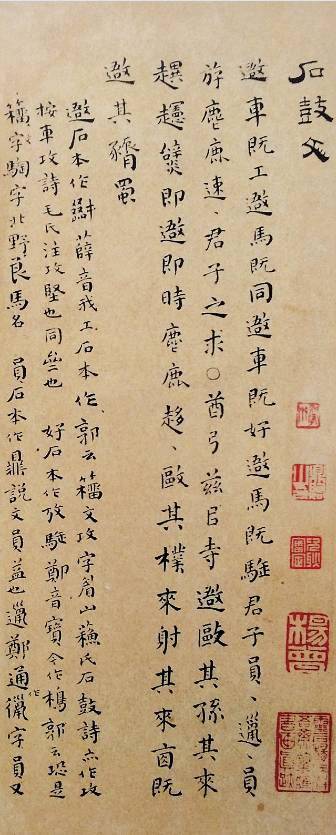 石鼓文
避車既工避馬既同避車既好避馬既駓君子員〻邋〻員
斿麀鹿速〻君子之求○酋弓茲㠯寺避敺其孫其來
趩趩即避即時麀鹿趍〻敺其樸來射其來既
避其蜀
避石本作薛音我工石本作〻郭云籀文攻字眉山蘇氏石鼓詩亦作攻
按車攻詩毛氏注攻堅也同也好石本作鄭音寶今作郭云恐是
籀字騊字北野良馬名員石本作鼎說文員益也邋鄭通作獵字員又